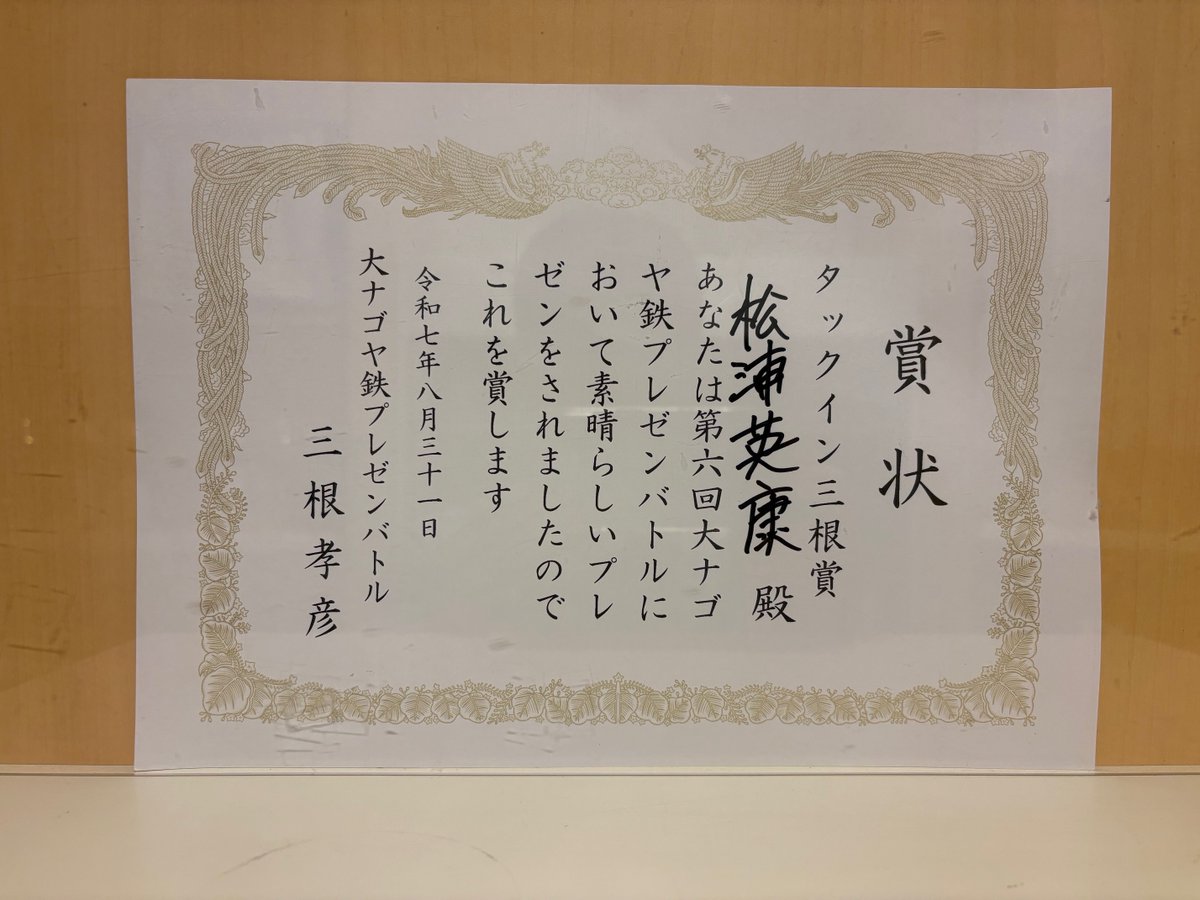 賞状
タックイン三根賞
松浦英康 殿
あなたは第六回大ナゴ
ヤ鉄プレゼンバトルに
おいて素晴らしいプレ
ゼンをされましたので
これを賞します
令和七年八月三十一日
大ナゴヤ鉄プレゼンバトル
三根孝彦